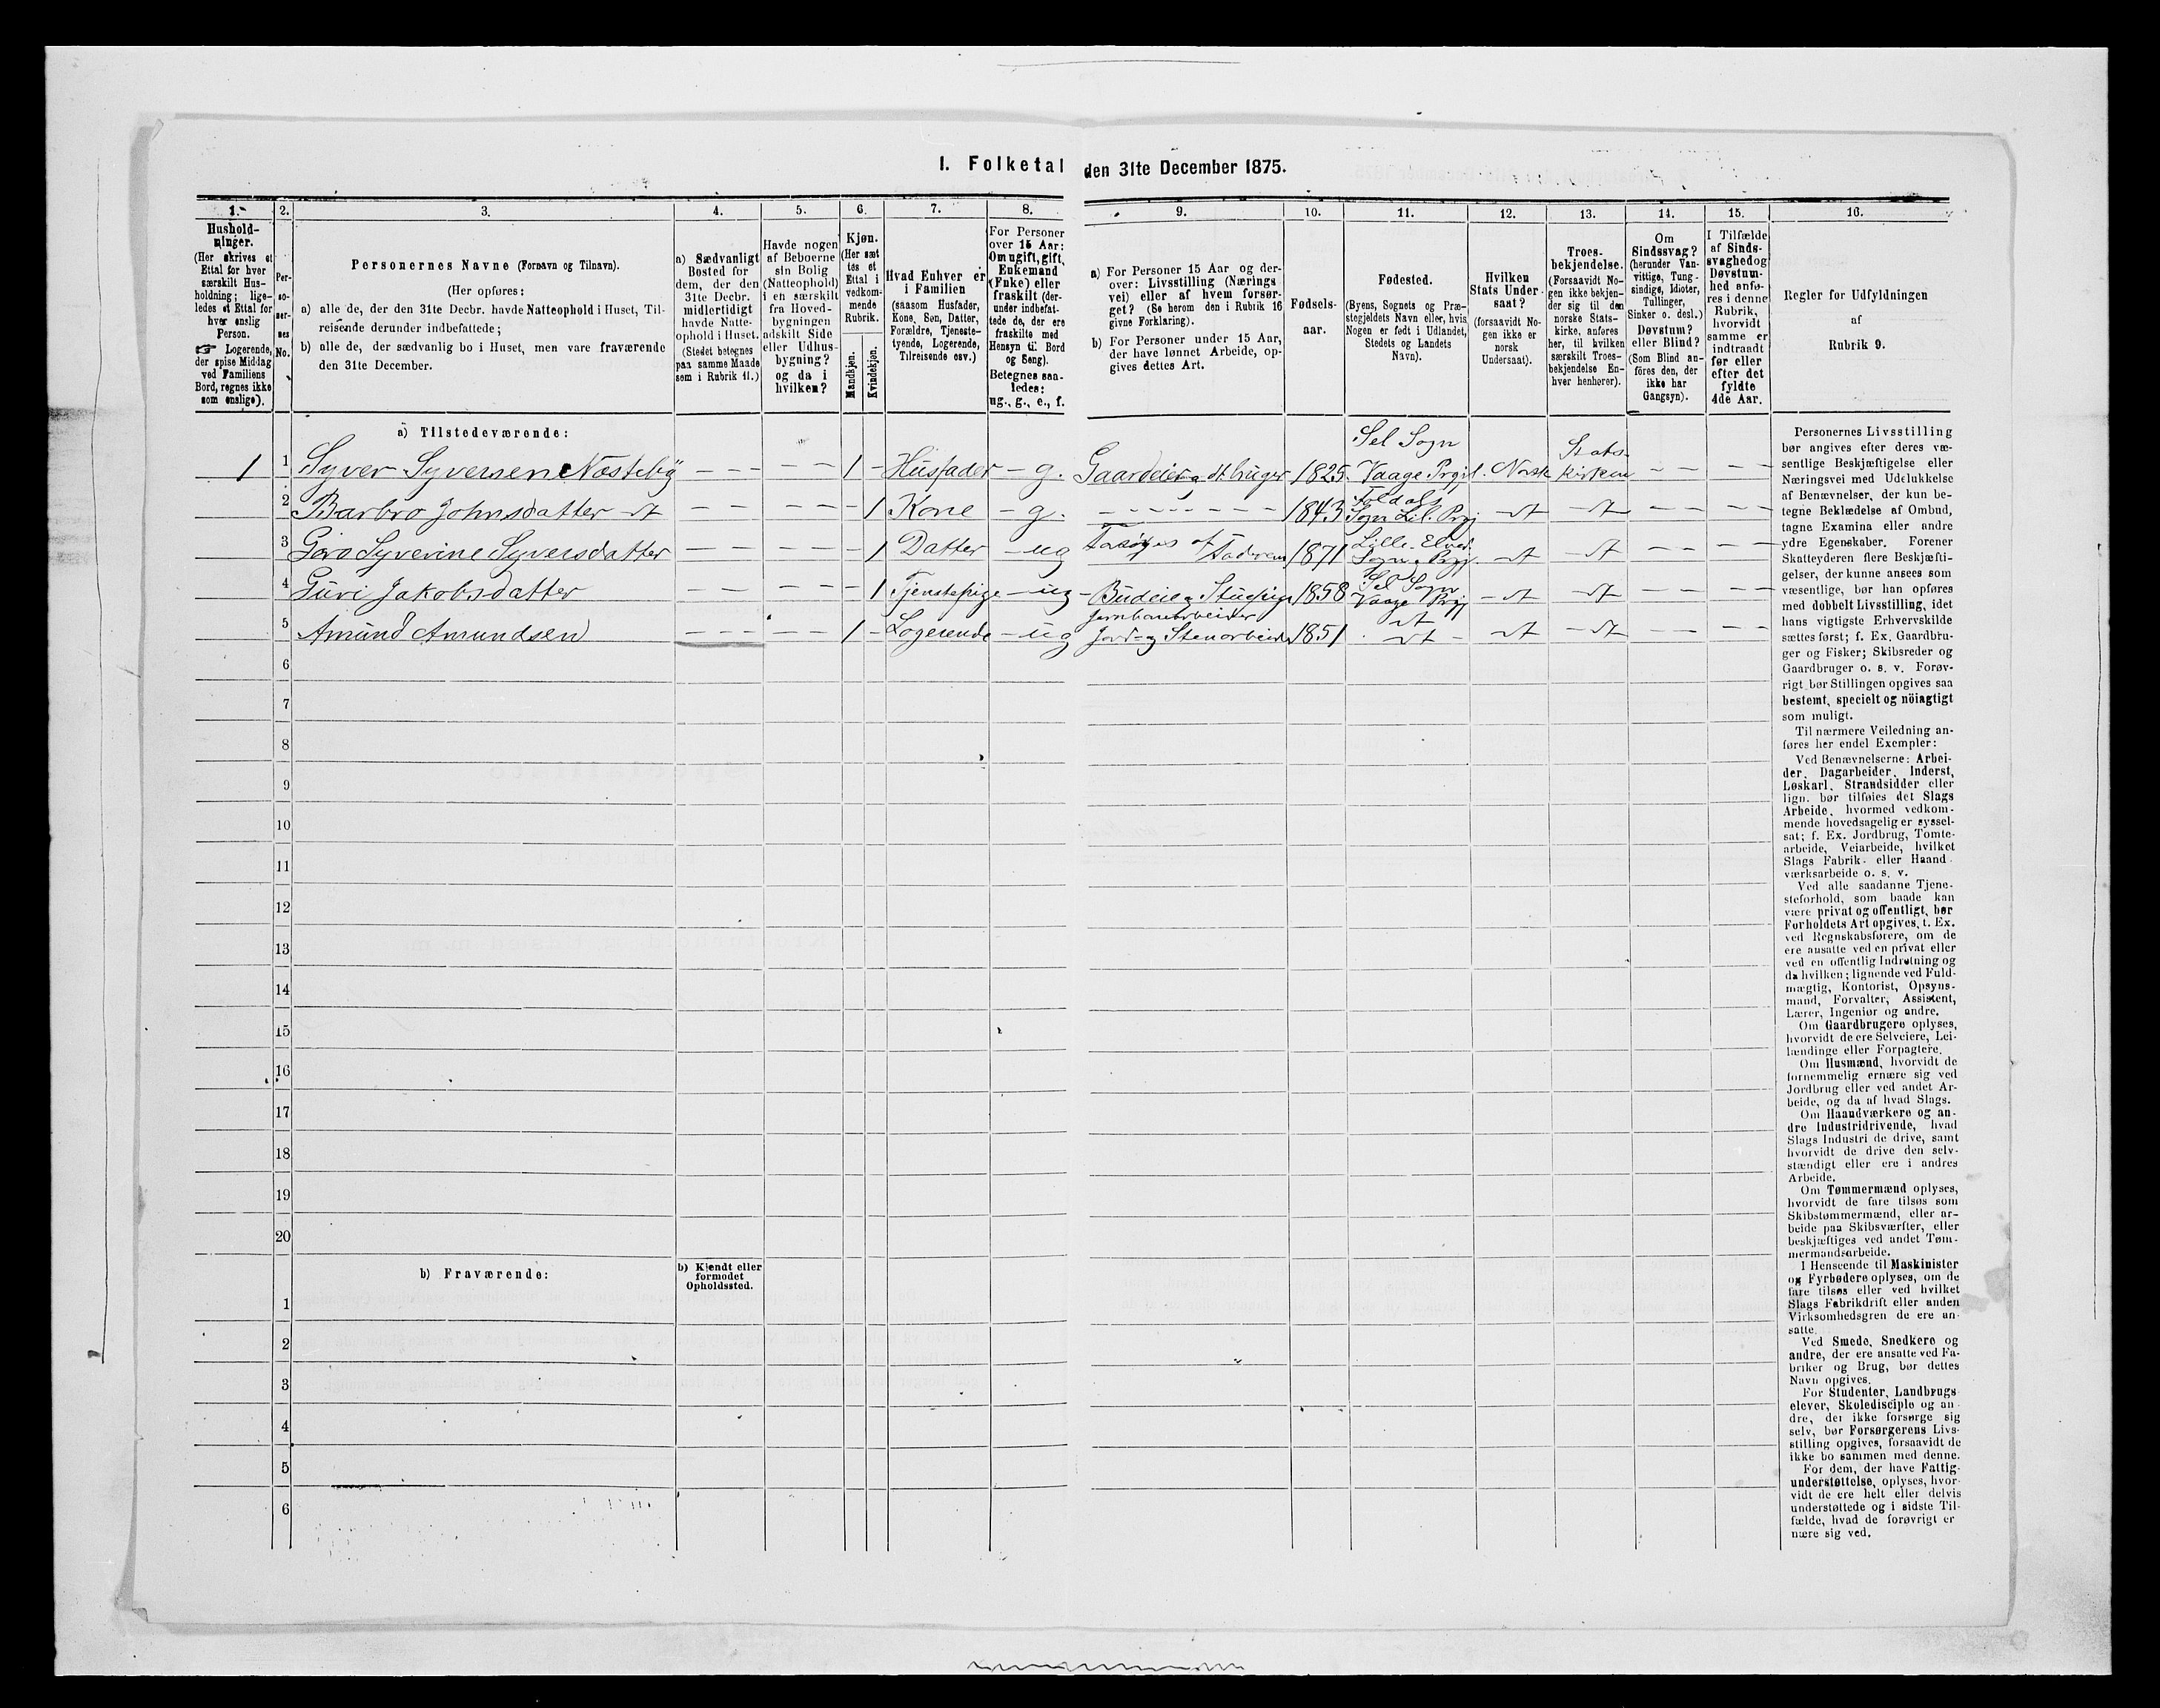 I. Folketal den 31te December 1875.
1. 2. 3. 4. 5. 6. 7. 8. 9. 10. 11. 12. 13. 14. 15. 16.
Hushold-
ninger.
(Her skrives et
Ettal for hver
særskilt Hus-
holdning; lige-
ledes et Ettal for
hver enslig
Person.
☞ Logerende,
der spise Middag
ved Familiens
Bord, regnes ikke
som enslige).
Per-
so-
ner-
nes
No.
Personernes Navne (Fornavn og Tilnavn).
(Her opføres:
a) alle de, der den 31te Decbr. havde Natteophold i Huset, Til-
reisende derunder indbefattede;
b) alle de, der sædvanlig bo i Huset, men vare fraværende
den 31te December.
a) Sædvanligt
Bosted for
dem, der den
31te Decbr.
midlertidigt
havde Natte-
ophold i Huset.
(Stedet betegnes
paa samme Maade
som i Rubrik 11.)
Havde nogen
af Beboerne
sin Bolig
(Natteophold)
i en særskilt
fra Hoved-
bygningen
adskilt Side
eller Udhus-
bygning?
og da i
hvilken?
Kjøn.
(Her sæt
tes et
Ettal i
vedkom-
mende
Rubrik.
Mandkjøn.
Kvindekjøn.
Hvad Enhver er
i Familien
(saasom Husfader,
Kone, Søn, Datter,
Forældre, Tjeneste-
tyende, Logerende,
Tilreisende osv.)
For Personer
over 15 Aar:
Om ugift, gift,
Enkemand
(Enke) eller
fraskilt (der-
under indbefat-
tede de, der ere
fraskilte med
Hensyn til Bord
og Seng).
Betegnes saa-
ledes:
ug., g., e., f.
a) For Personer 15 Aar og der-
over: Livsstilling (Nærings
vei) eller af hvem forsør-
get? (Se herom den i Rubrik 16
givne Forklaring).
b) For Personer under 15 Aar,
der have lønnet Arbeide, op-
gives dettes Art.
Fødsels-
aar.
Fødested.
(Byens, Sognets og Præ-
stegjeldets Navn eller, hvis
Nogen er født i Udlandet,
Stedets og Landets
Navn).
Hvilken
Stats Under-
saat?
(forsaavidt No-
gen ikke er
norsk
Undersaat).
Troes-
bekjendelse.
(Forsaavidt No-
gen ikke bekjen-
der sig til den
norske Stats-
kirke, anføres
her, til hvilken
særskilt Troes-
bekjendelse En-
hver henhører).
Om
Sindssvag?
(herunder Van-
vittige, Tung-
sindige, Idioter,
Tullinger,
Sinker o. desl.)
Døvstum?
eller Blind?
(Som Blind an-
føres den, der
ikke har
Gangsyn).
I Tilfælde
af Sinds-
svaghed og
Døvstum-
hed anfø-
res i denne
Rubrik,
hvorvidt
samme er
indtraadt
før eller
efter det
fyldte
4de Aar.
Regler for Udfyldningen
af
Rubrik 9.
a) Tilstedeværende:
1 1 Syver Syversen Næsteby - - - - - 1 - Husfader - g. Gaardeier og dt. bruger 1825. Sel Sogn Vaage Prgjl. Norsk Statskirken - - - -
2 Barbro Johnsdatter dt - - - - - - 1 Kone - g. - - - - - - 1843 Foldals Sogn Lil. Prgj - dt - dt - - - -
3 Goro Syverine Syversdatter - - - - - 1 Datter - ug Forsørges af Faderen 1871 Lille-Elvd. Sogn o Prgj. - dt - dt - - - -
4 Guri Jakobsdatter - - - - 1 Tjenstepige - ug - Budeie og Stuepige 1858 Sel Sogn Vaage Prgj - dt - dt - - - -
5 Amund Amundsen - - - - - 1 - Logerende - ug Jernbanearbeider Jord- og Stenarbeider 1851. dt dt - - dt - dt - - - -
6
7
8
9
10
11
12
13
14
15
16
17
18
19
20
b) Fraværende:
b) Kjendt eller
formodet
Opholdssted.
1
2
3
4
5
6
Personernes Livsstilling
bør angives efter deres væ-
sentlige Beskjæftigelse eller
Næringsvei med Udelukkelse
af Benævnelser, der kun be-
tegne Beklædelse af Ombud,
tagne Examina eller andre
ydre Egenskaber. Forener
Skatteyderen flere Beskjæfti-
gelser, der kunne ansees som
væsentlige, bør han opføres
med dobbelt Livsstilling, idet
hans vigtigste Erhvervskilde
sættes først; f. Ex. Gaardbru-
ger og Fisker; Skibsreder og
Gaardbruger o. s. v. Forøv-
rigt bør Stillingen opgives saa
bestemt, specielt og nöiagtigt
som muligt.
Til nærmere Veiledning an-
føres her endel Exempler:
Ved Benævnelserne: Arbei-
der, Dagarbeider, Inderst,
Løskarl, Strandsidder eller
lign. bør tilføies det Slags
Arbeide, hvormed vedkom-
mende hovedsagelig er syssel-
sat; f. Ex. Jordbrug, Tomte-
arbeide, Veiarbeide, hvilket
Slags Fabrik- eller Haand-
værksarbeide o. s. v.
Ved alle saadanne Tjene-
steforhold, som baade kan
være privat og offentligt, bør
Forholdets Art opgives, t. Ex.
ved Regnskabsførere, om de
ere ansatte ved en privat eller
ved en offentlig Indretning og
da hvilken; lignende ved Fuld-
mægtig, Kontorist, Opsyns-
mand, Forvalter, Assistent,
Lærer, Ingeniør og andre.
Om Gaardbrugere oplyses,
hvorvidt de ere Selveiere, Lei-
lændinge eller Forpagtere.
Om Husmænd, hvorvidt de
fornemmelig ernære sig ved
Jordbrug eller ved andet Ar-
beide, og da af hvad Slags.
Om Haandværkere og an-
dre Industridrivende, hvad
Slags Industri de drive, samt
hvorvidt de drive den selv-
stændigt eller ere i andres
Arbeide.
Om Tømmermænd oplyses,
hvorvidt de fare tilsøs som
Skibstømmermænd, eller ar-
beide paa Skibsværfter, eller
beskjæftiges ved andet Tøm-
mermandsarbeide.
I Henseende til Maskinister
og Fyrbødere oplyses, om de
fare tilsøs eller ved hvilket
Slags Fabrikdrift eller anden
Virksomhedsgren de ere an-
satte.
Ved Smede, Snedkere og
andre, der ere ansatte ved Fa-
briker og Brug, bør dettes
Navn opgives.
For Studenter, Landbrugs-
elever, Skoledisciple og an-
dre, der ikke forsørge sig
selv, bør Forsørgerens Livs-
stilling opgives, forsaavidt de
ikke bo sammen med denne.
For dem, der have Fattig-
understøttelse, oplyses, hvor-
vidt de ere helt eller delvis
understøttede og i sidste Til-
fælde, hvad de forøvrigt er-
nære sig ved.